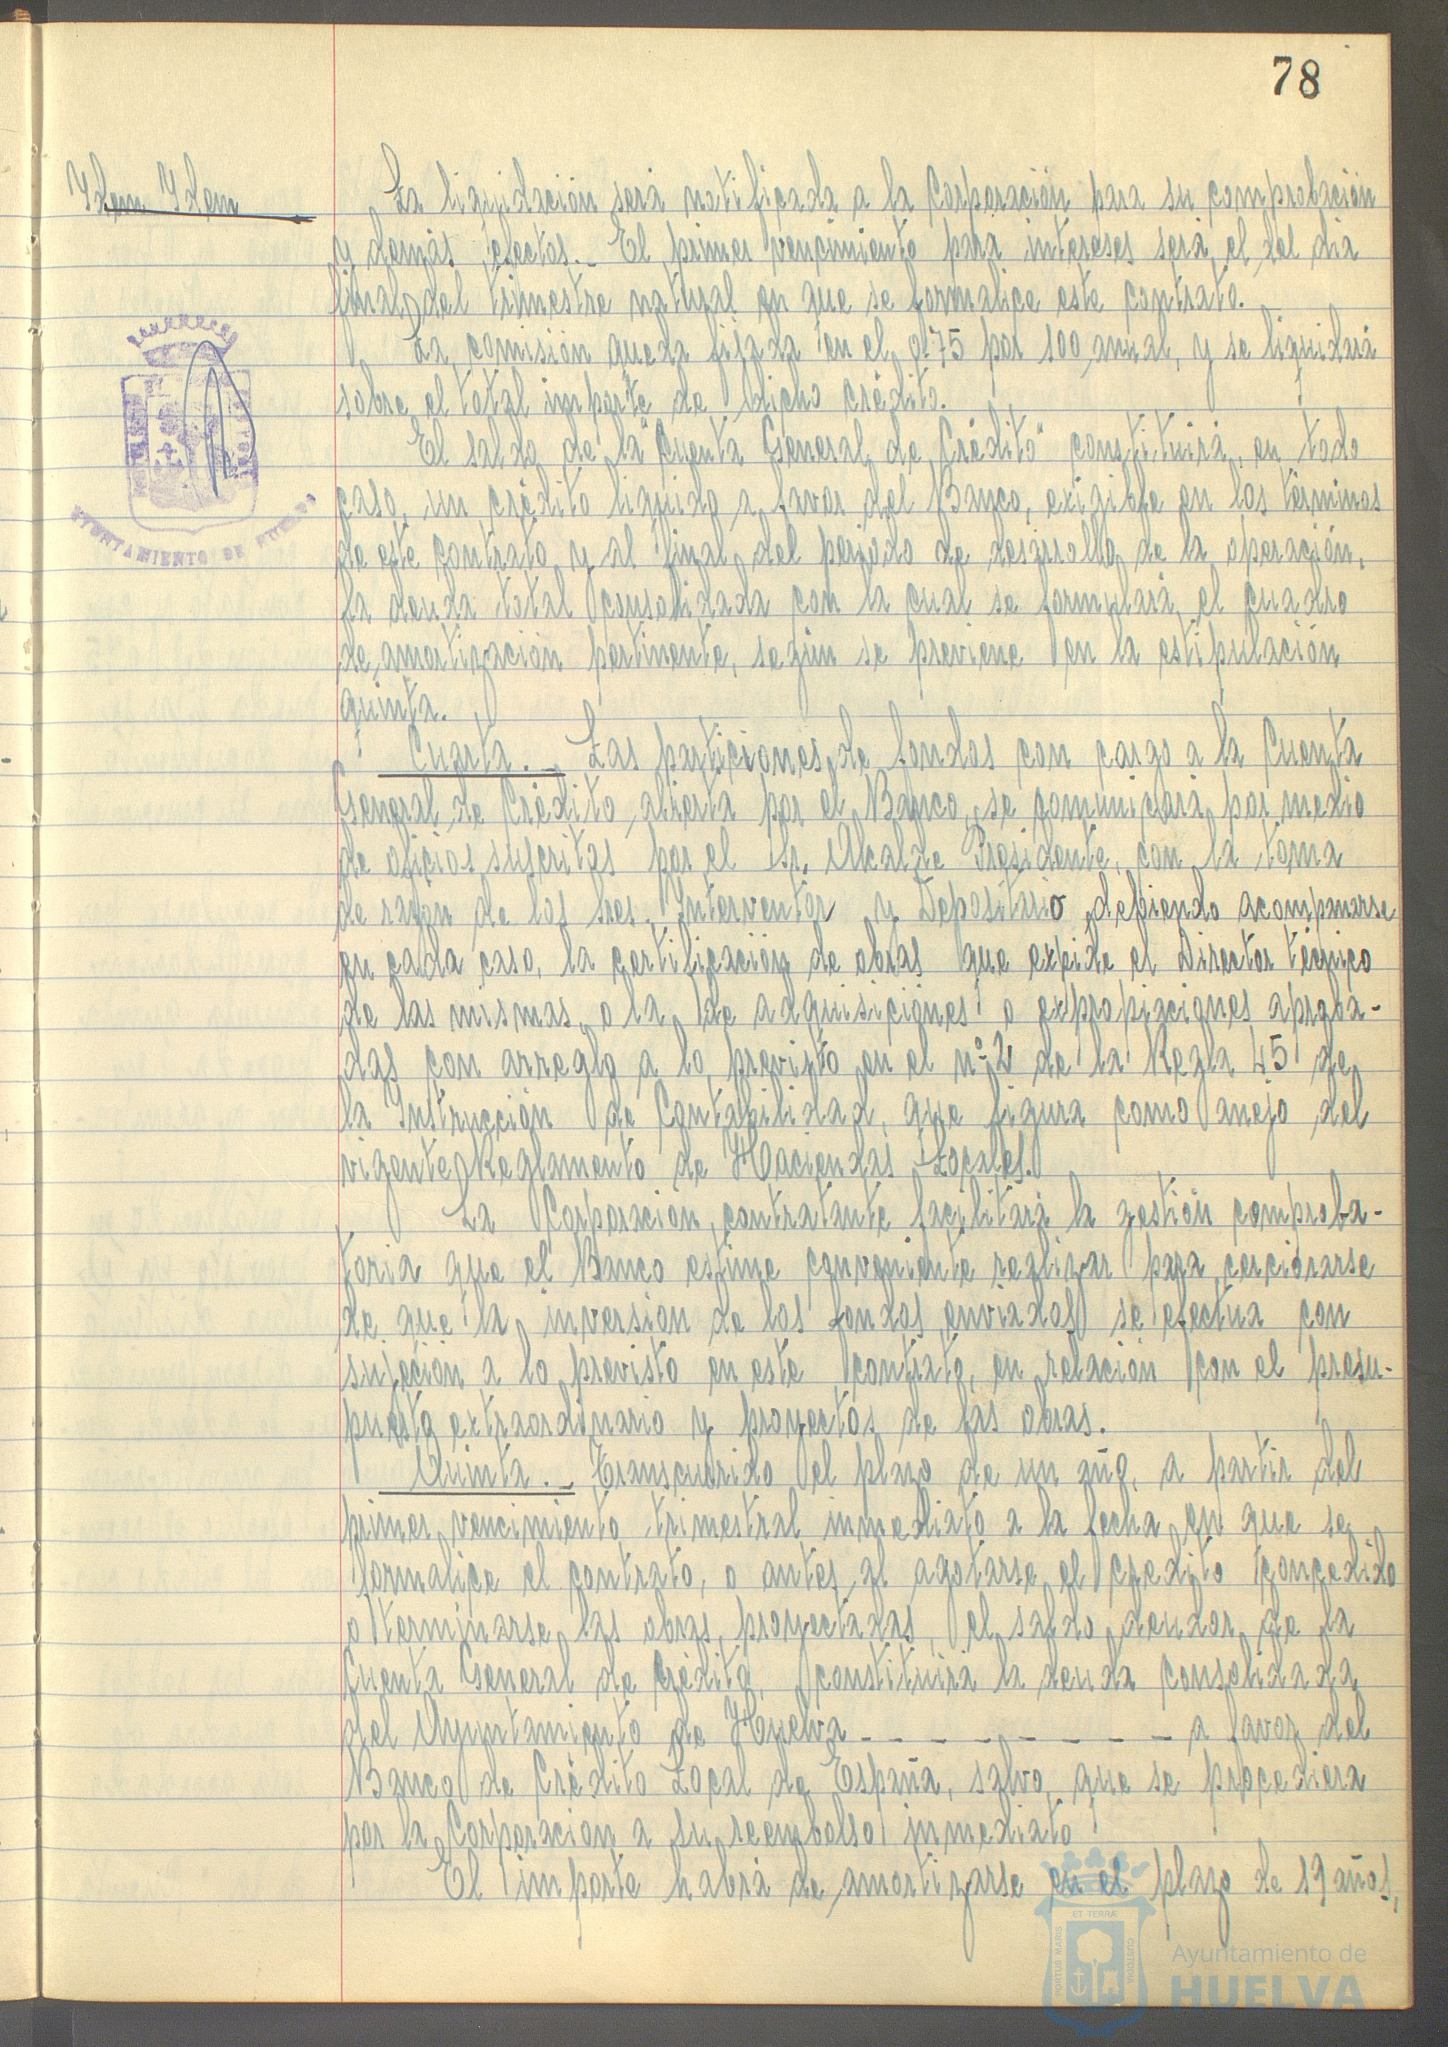 78
Idem Idem
La liquidación será notificada a la Corporación para su comprobación
y demás efectos._ El primer vencimiento para intereses será el del día
final del trimestre natural en que se formalice este contrato.
La comisión queda fijada en el 0'75 por 100 anual, y se liquidará
sobre el total importe de dicho crédito.
El saldo de la "Cuenta General de Crédito" constituirá, en todo
caso, un crédito líquido a favor del Banco, exigible en los términos
de este contrato y al final del período de desarrollo de la operación,
la deuda total consolidada con la cual se formulará el cuadro
de amortización pertinente, según se previene en la estipulación
quinta.
AYUNTAMIENTO DE HUELVA
Cuarta._ Las peticiones de fondos con cargo a la Cuenta
General de Crédito abierta por el Banco, se comunicará por medio
de oficios suscritos por el Sr. Alcalde Presidente, con la toma
de razón de los Sres. Interventor y Depositario debiendo acompañarse
en cada caso, la certificación de obras que expide el Director técnico
de las mismas, o la de adquisiciones o expropiaciones aproba-
das con arreglo a lo previsto en el nº 2 de la Regla 45 de
la Instrucción de Contabilidad, que figura como anejo del
vigente Reglamento de Haciendas Locales.
La Corporación contratante facilitará la gestión comproba-
toria que el Banco estime conveniente realizar para cerciorarse
de que la inversión de los fondos enviados se efectúa con
sujeción a lo previsto en este contrato, en relación con el presu-
puesto extraordinario y proyectos de las obras.
Quinta._ Transcurrido el plazo de un año, a partir del
primer vencimiento trimestral inmediato a la fecha en que se
formalice el contrato, o antes al agotarse el crédito concedido
o terminarse las obras proyectadas, el saldo deudor de la
Cuenta General de Crédito, constituirá la deuda consolidada
del Ayuntamiento de Huelva - - - - - - - - - a favor del
Banco de Crédito Local de España, salvo que se procediera
por la Corporación a su reembolso inmediato
El importe habrá de amortizarse en el plazo de 19 años,
ET TERRÆ
PORTUS MARIS
CUSTODIA
Ayuntamiento de
HUELVA